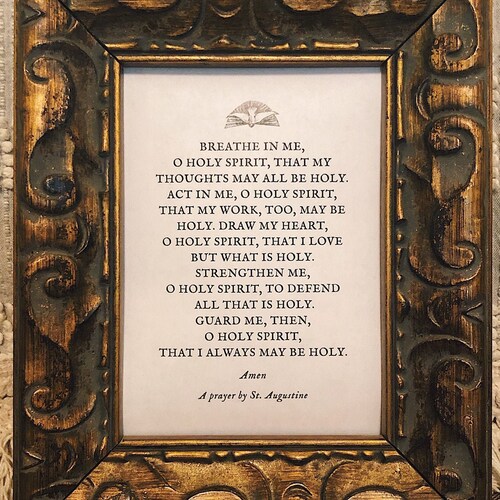 BREATHE IN ME,
O HOLY SPIRIT, THAT MY
THOUGHTS MAY ALL BE HOLY.
ACT IN ME, O HOLY SPIRIT,
THAT MY WORK, TOO, MAY BE
HOLY. DRAW MY HEART,
O HOLY SPIRIT, THAT I LOVE
BUT WHAT IS HOLY.
STRENGTHEN ME,
O HOLY SPIRIT, TO DEFEND
ALL THAT IS HOLY.
GUARD ME, THEN,
O HOLY SPIRIT,
THAT I ALWAYS MAY BE HOLY.
Amen
A prayer by St. Augustine